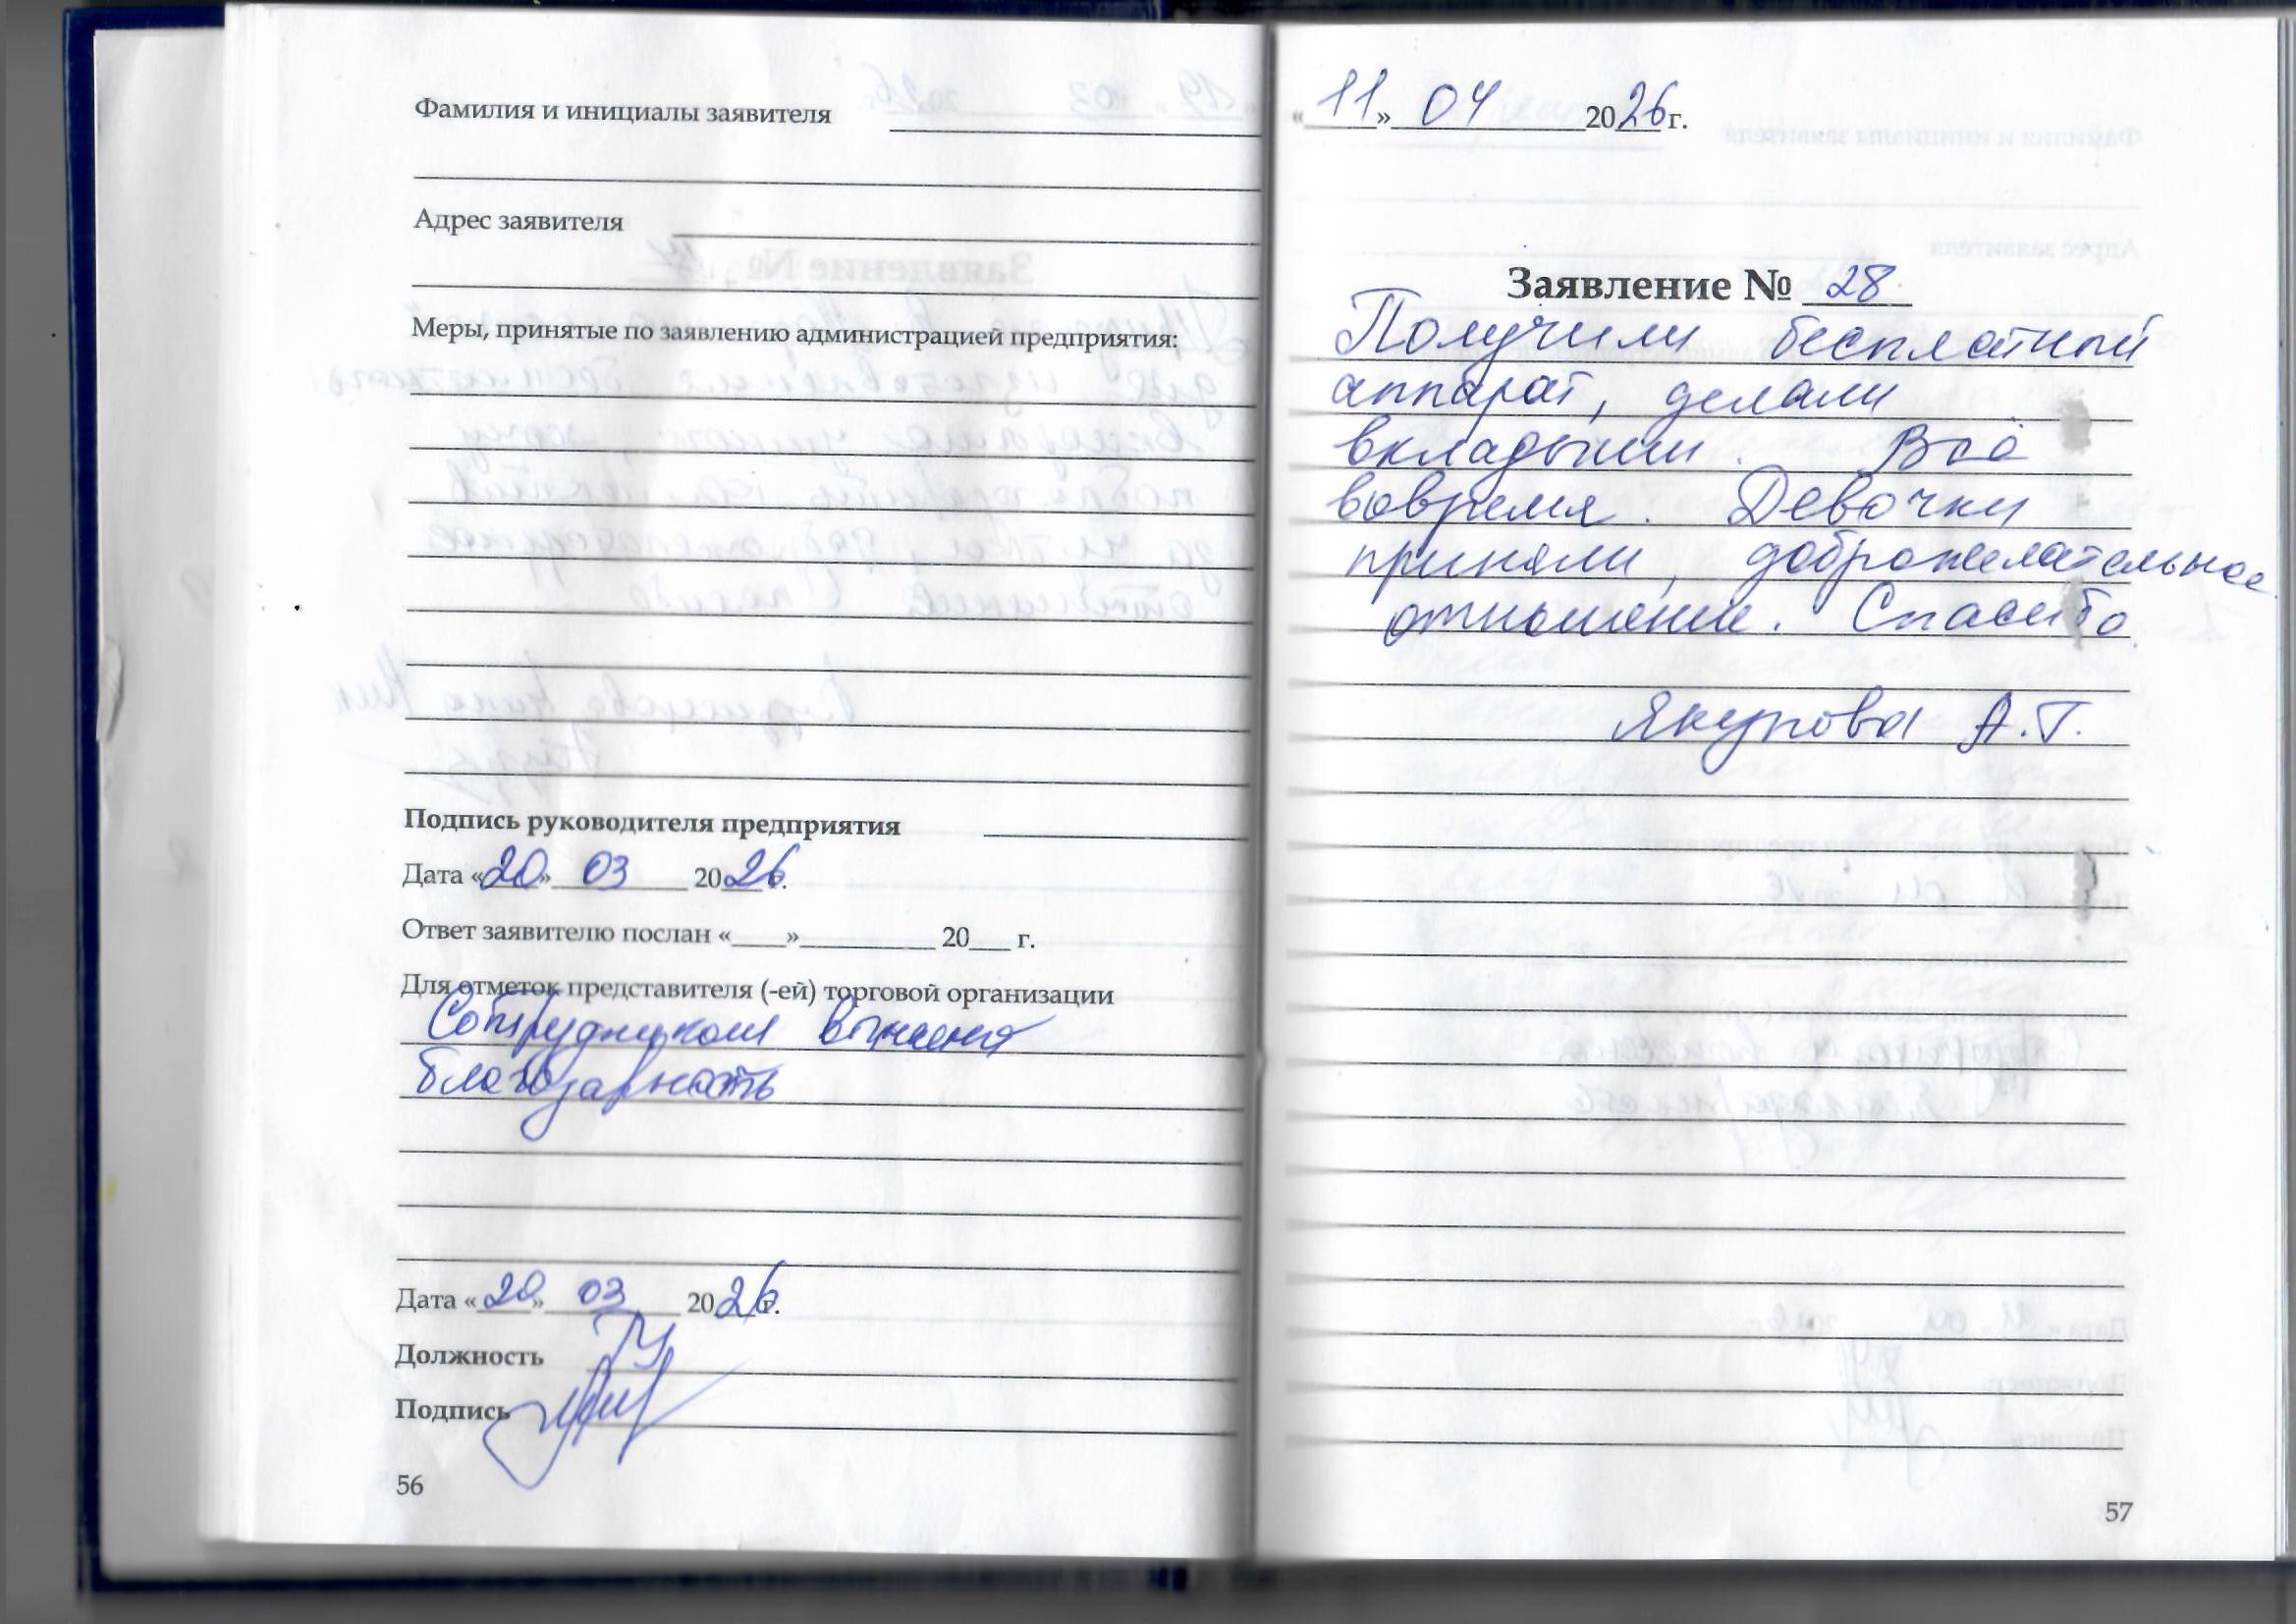 Фамилия и инициалы заявителя
Адрес заявителя
Меры, принятые по заявлению администрацией предприятия:
Подпись руководителя предприятия
Дата «20» 03 2026 г.
Ответ заявителю послан «____»__________ 20___ г.
Для отметок представителя (-ей) торговой организации
Сотрудникам вынесена
благодарность
Дата «20» 03 2026 г.
Должность
Подпись
56
«11» 04 2026 г.
Заявление № 28
Получили бесплатный
аппарат, делали
вкладыши. Всё
вовремя. Девочки
приняли, доброжелательное
отношение. Спасибо
Якупова А.Г.
57